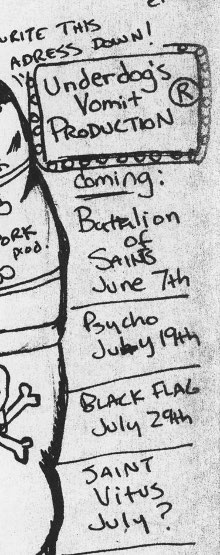 WRITE THIS
ADRESS DOWN!
Underdog's
Vomit
PRODUCTION
®
coming:
Batalion
of
SAINTS
June 7th
Psycho
July 19th
BLACK FLAG
July 29th
SAINT
Vitus
July ?
ORK
prod.